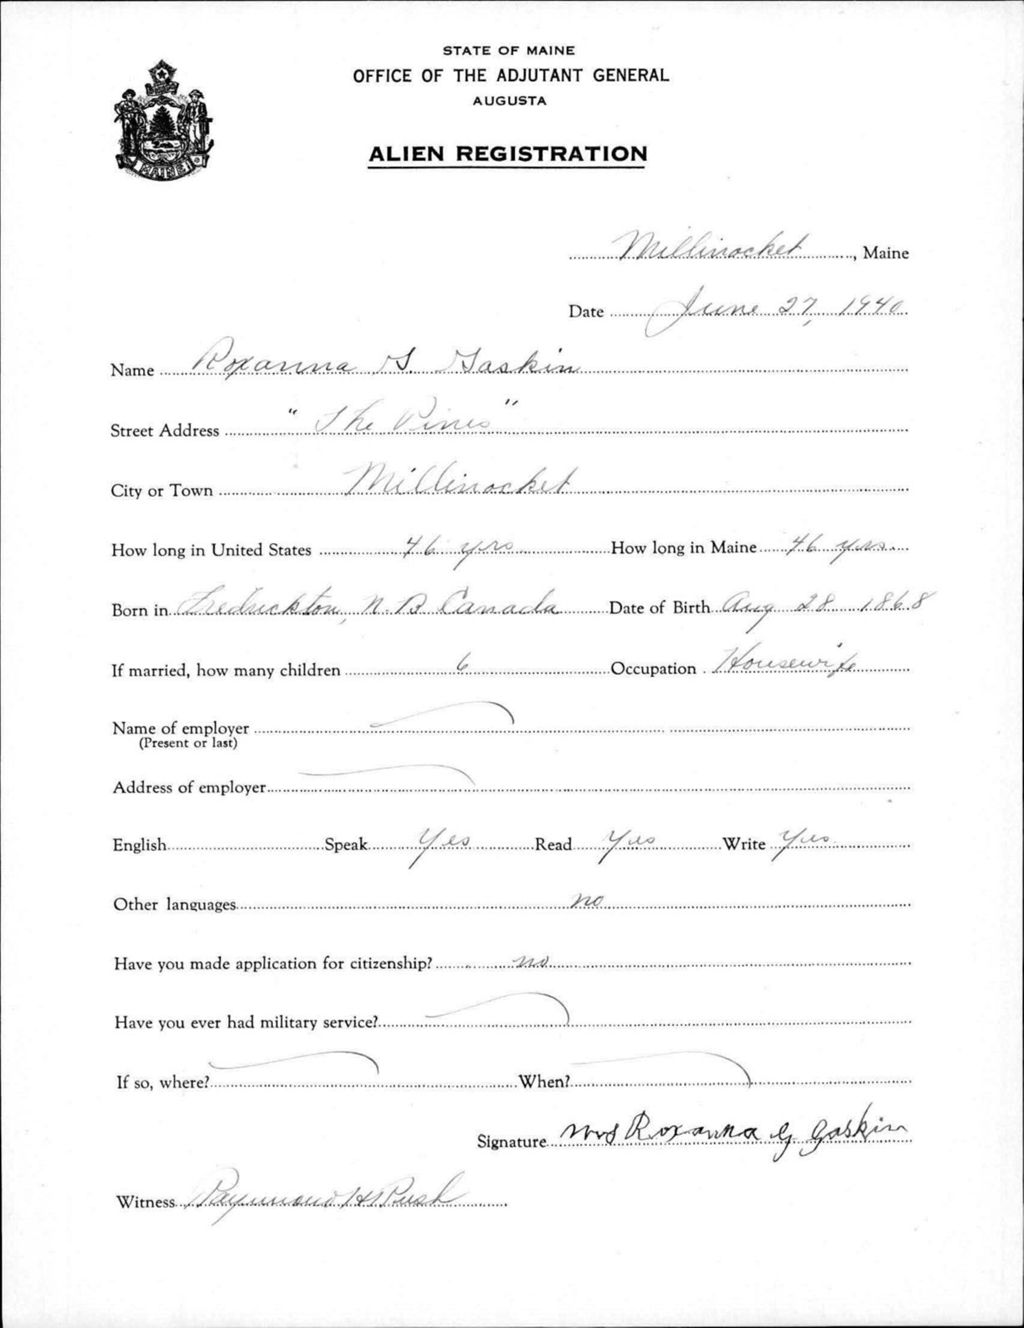 STATE OF MAINE
OFFICE OF THE ADJUTANT GENERAL
AUGUSTA
ALIEN REGISTRATION
MAINE
Millinocket, Maine
Date June 27, 1940
Name Roxanna G. Gaskin
Street Address "The Pines"
City or Town Millinocket
How long in United States 46 yrs How long in Maine 46 yrs.
Born in Fredrickton, N.B. Canada Date of Birth Aug 28 1868
If married, how many children 6 Occupation Housewife
Name of employer
(Present or last)
Address of employer
English Speak Yes Read Yes Write Yes
Other languages no
Have you made application for citizenship? no
Have you ever had military service?
If so, where? When?
Signature Mrs Roxanna G Gaskin
Witness Raymond H Rush